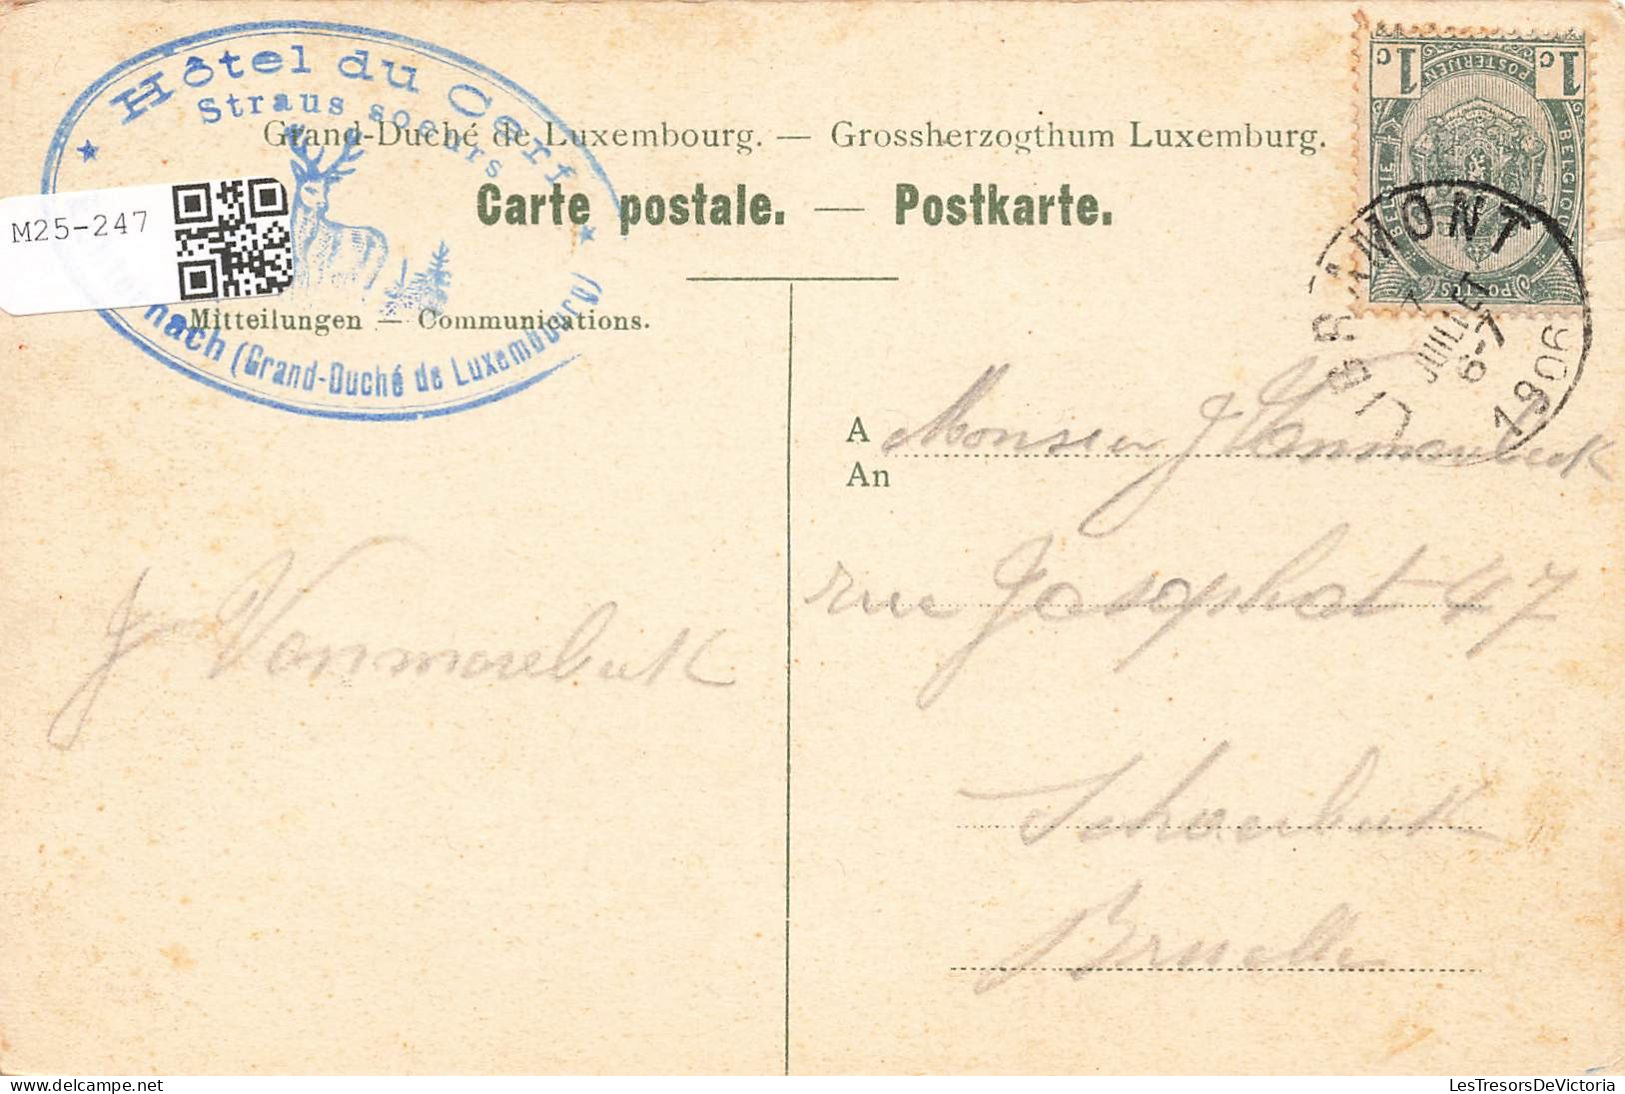 Hôtel du Cerf
Straus soeurs
nach (Grand-Duché de Luxembourg)
M25-247
Grand-Duché de Luxembourg. — Grossherzogthum Luxemburg.
Carte postale. — Postkarte.
Mitteilungen — Communications.
1c 1c
POSTERIJEN
BELGIË BELGIQUE
POSTES
BRAMONT
7
JUILLET
6-7
1906
A Monsieur J Vanmoerbeek
An
rue Josaphat 47
Schaerbeek
Bruxelle
J Vanmoerbeek
LesTresorsDeVictoria
delcampe.net